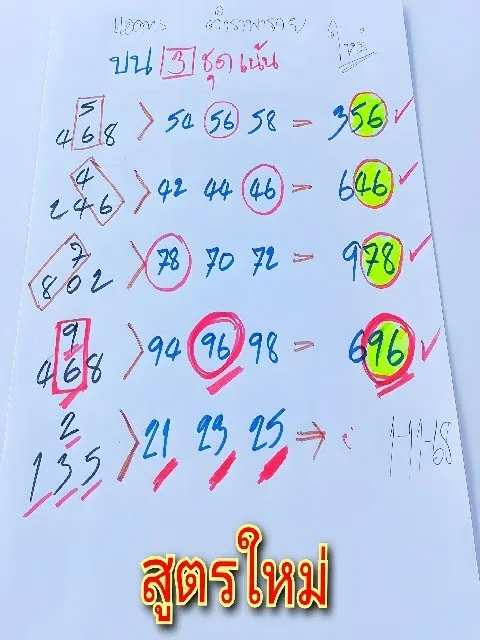 บน 3 ชุดเน้น
5
468 > 54 56 58 = 356 ✓
4
246 > 42 44 46 = 646 ✓
7
802 > 78 70 72 = 978 ✓
9
468 > 94 96 98 = 696 ✓
2
135 > 21 23 25 ⇒ 1-11-68
สูตรใหม่